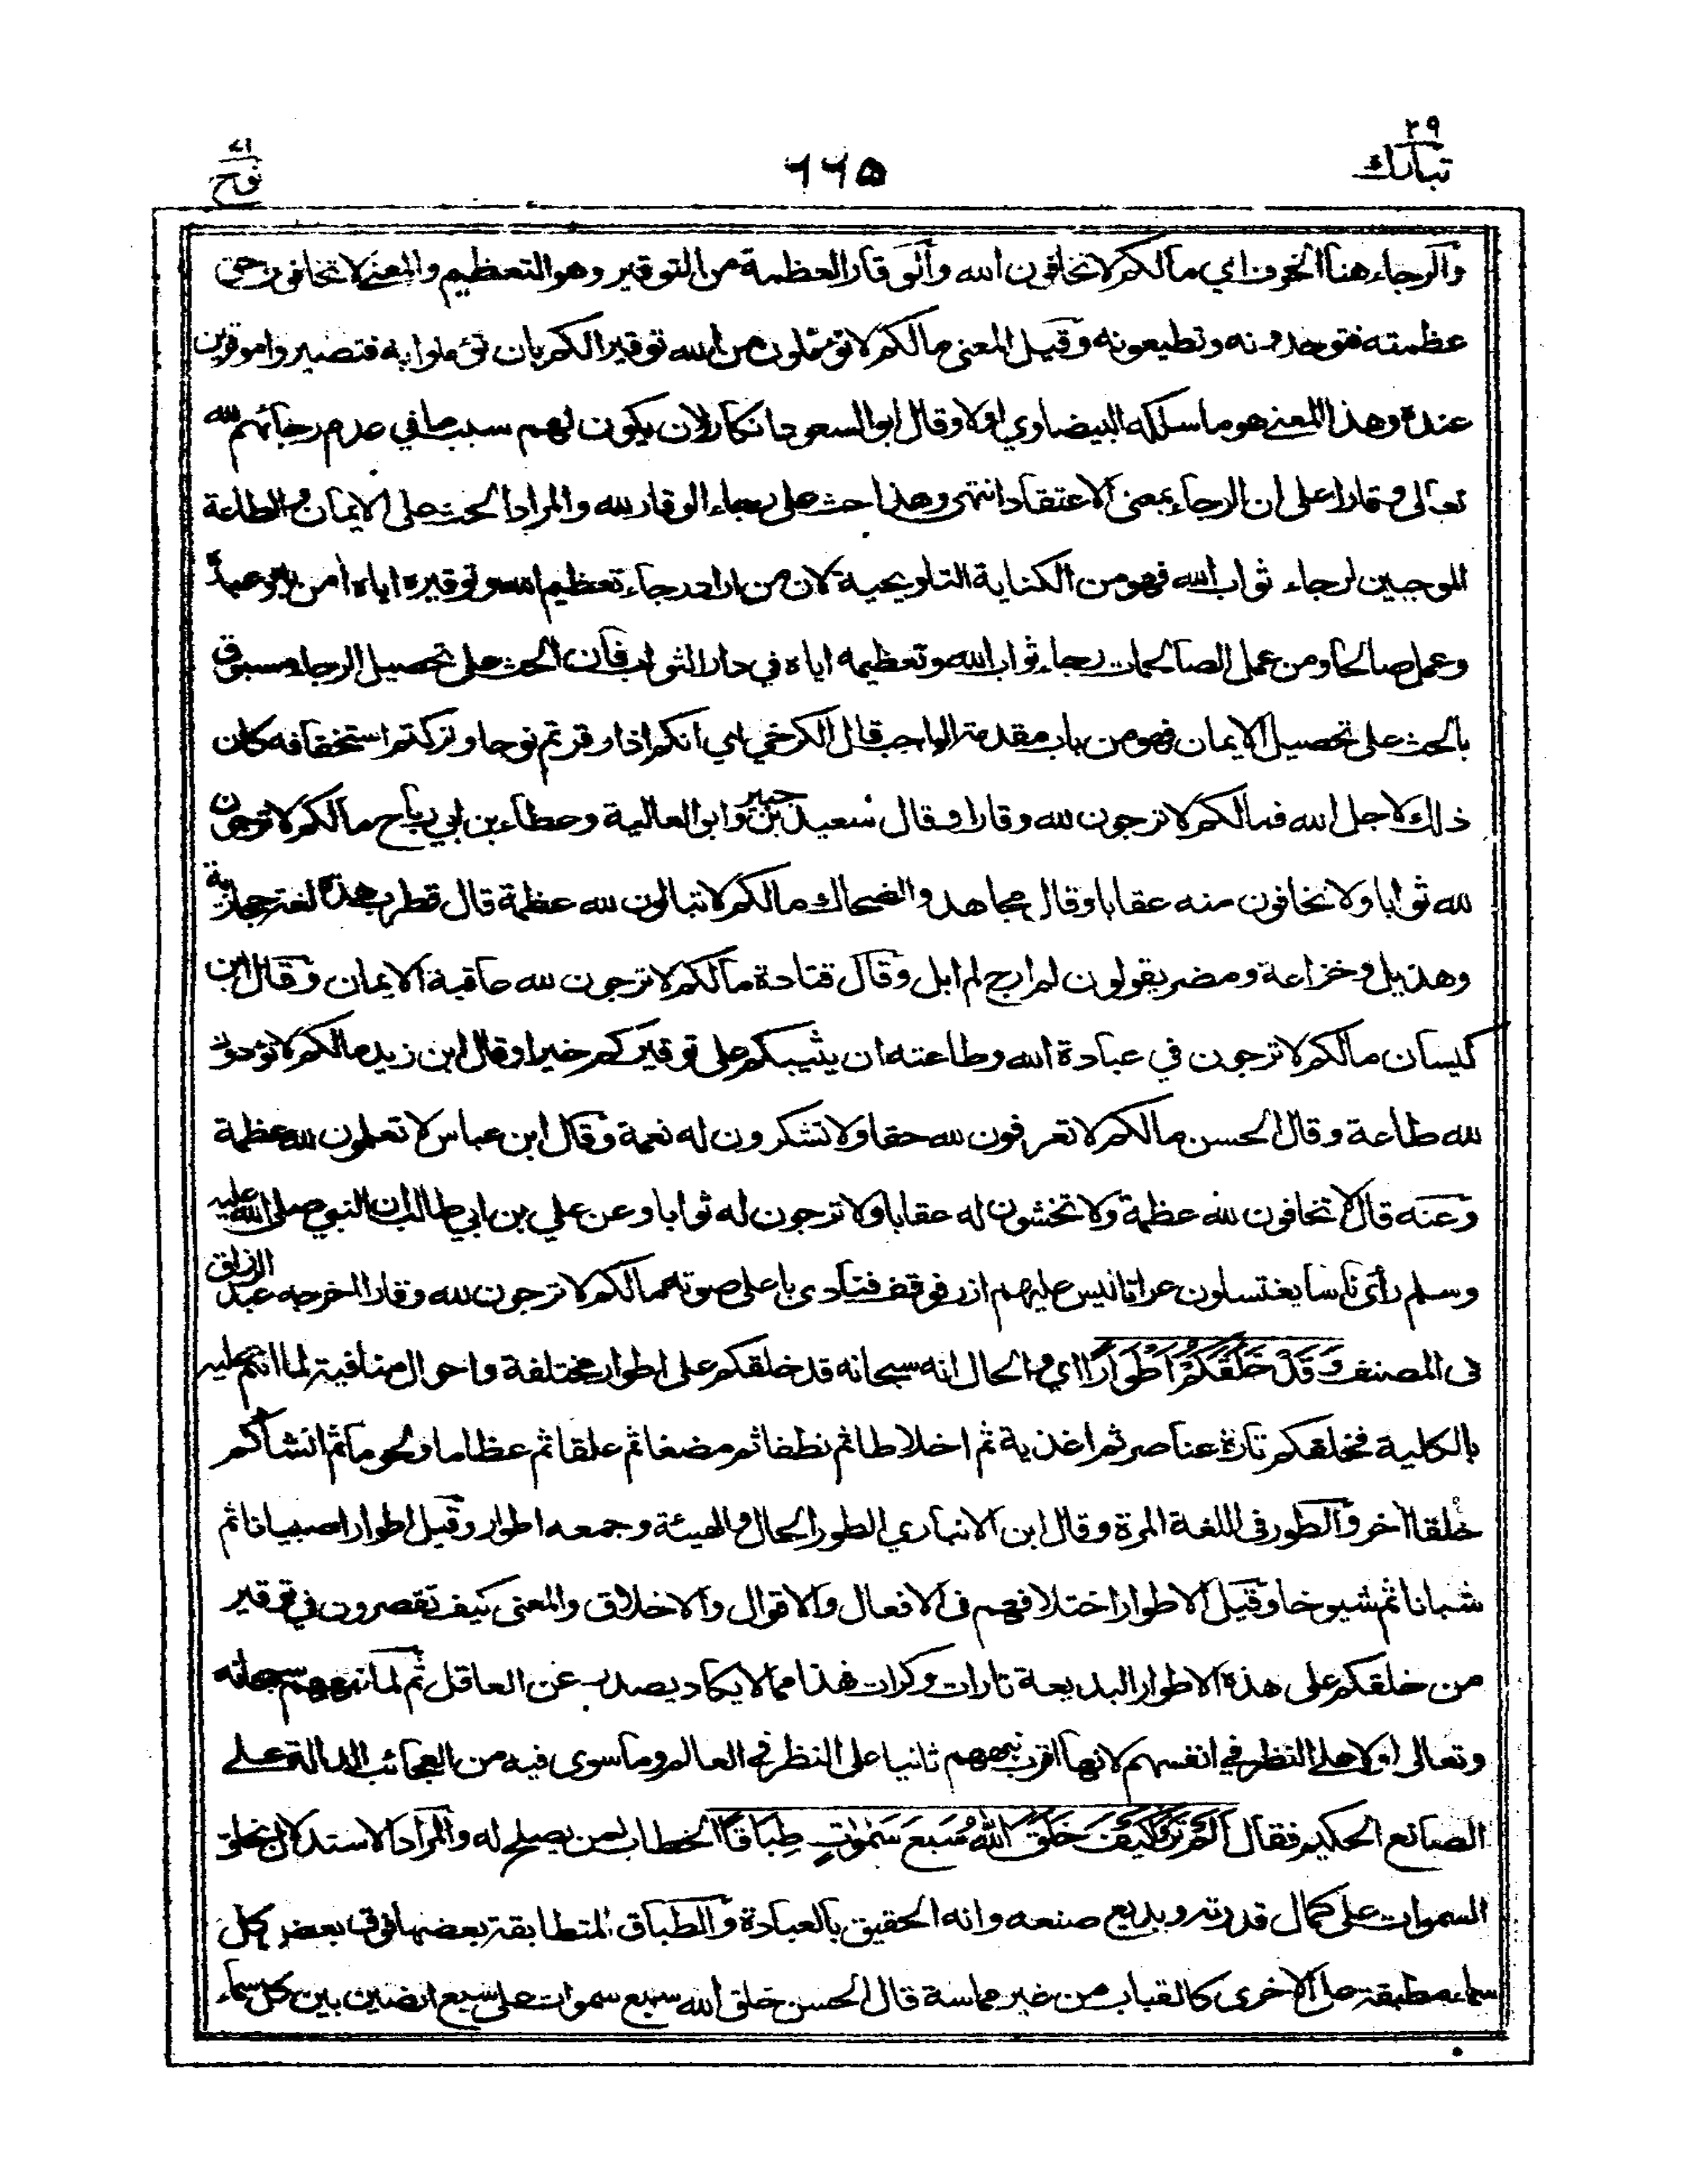 ٢٩
تبارك
٦٦٥
٧١
نوح
والرجاء هنا الخوف اي مالكم لا تخافون الله والوقار العظمة من التوقير وهو التعظيم والمعنى لا تخافون حق
عظمته فتوحدونه وتطيعونه وقيل المعنى مالكم لا تؤملون من الله توقيرا لكم بان تؤملوا به فتصيروا موقرين
عنده وهذا المعنى هو ما سلكه البيضاوي اولا وقال ابو السعود انكار لان يكون لهم سبب ما في عدم رجائهم لله
تعالى وقارا على ان الرجاء بمعنى الاعتقاد انتهى وهذا حث على رجاء الوقار لله والمراد الحث على الايمان والطاعة
الموجبين لرجاء ثواب الله فهو من الكناية التلويحية لان من اراد رجاء تعظيم الله وتوقيره اياه امن به وعبده
وعمل صالحا ومن عمل الصالحات رجاء ثواب الله وتعظيمه اياه في دار الثواب فان الحث على تحصيل الرجاء مسبوق
بالحث على تحصيل الايمان فهو من باب مقدمة الواجب قال الكرخي اي انكم اذا وقرتم نوحا وتركتم استخفافه كان
ذلك لاجل الله فمالكم لا ترجون لله وقارا وقال سعيد بن جبير وابو العالية وعطاء بن ابي رباح مالكم لا ترجون
لله ثوابا ولا تخافون منه عقابا وقال مجاهد والضحاك مالكم لا تبالون لله عظمة قال قطرب هذه لغة حجازية
وهذيل وخزاعة ومضر يقولون لم ارج لم ابل وقال قتادة مالكم لا ترجون لله عاقبة الايمان وقال ابن
كيسان مالكم لا ترجون في عبادة الله وطاعته ان يثيبكم على توقيركم خيرا وقال ابن زيد مالكم لا تؤدون
لله طاعة وقال الحسن مالكم لا تعرفون لله حقا ولا تشكرون له نعمة وقال ابن عباس لا تعلمون لله عظمة
وعنه قال لا تخافون لله عظمة ولا تخشون له عقابا ولا ترجون له ثوابا وعن علي بن ابي طالب ان النبي صلى الله عليه
وسلم رأى ناسا يغتسلون عراة ليس عليهم ازر فوقف فنادى باعلى صوته مالكم لا ترجون لله وقارا اخرجه عبد الرزاق
فى المصنف وَقَدْ خَلَقَكُمْ أَطْوَارًا اي والحال انه سبحانه قد خلقكم على اطوار مختلفة واحوال منافية لما انتم عليه
بالكلية فخلقكم تارة عناصر ثم اغذية ثم اخلاطا ثم نطفا ثم مضغا ثم علقا ثم عظاما ولحوما ثم انشأكم
خلقا اخر والطور فى اللغة المرة وقال ابن الانباري الطور الحال والهيئة وجمعه اطوار وقيل اطوارا صبيانا ثم
شبانا ثم شيوخا وقيل الاطوار اختلافهم فى الافعال والاقوال والاخلاق والمعنى كيف تقصرون في توقير
من خلقكم على هذه الاطوار البديعة تارات وكرات هذا مما لا يكاد يصدر عن العاقل ثم لما نبههم سبحانه
وتعالى اولا على النظر في انفسهم لانها اقرب نبههم ثانيا على النظر في العالم وما سوى فيه من العجائب الدالة على
الصانع الحكيم فقال أَلَمْ تَرَوْا كَيْفَ خَلَقَ اللّٰهُ سَبْعَ سَمٰوٰتٍ طِبَاقًا الخطاب لمن يصلح له والمراد الاستدلال بخلق
السموات على كمال قدرته وبديع صنعه وانه الحقيق بالعبادة والطباق المتطابقة بعضها فوق بعض كل
سماء مطبقة على الاخرى كالقباب من غير مماسة قال الحسن خلق الله سبع سموات على سبع ارضين بين كل سماء